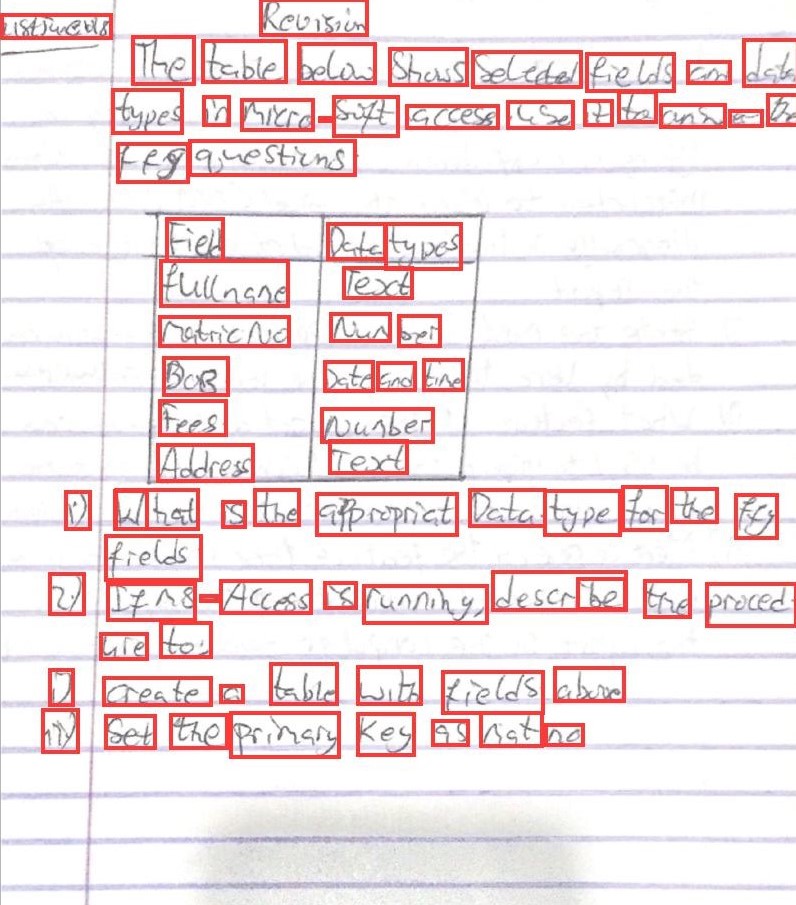 Revision
The table below Shows Selected fields and data
types in Micro-Soft access use it to answer the
ffg questions
Field Data types
fullname Text
MatricNo Number
DOB Date and time
Fees Number
Address Text
i) What is the appropriat Data type for the ffg
fields
2) If MS-Access is running, describe the proced
ure to:
i) create a table with fields above
ii) Set the primary Key as mat no